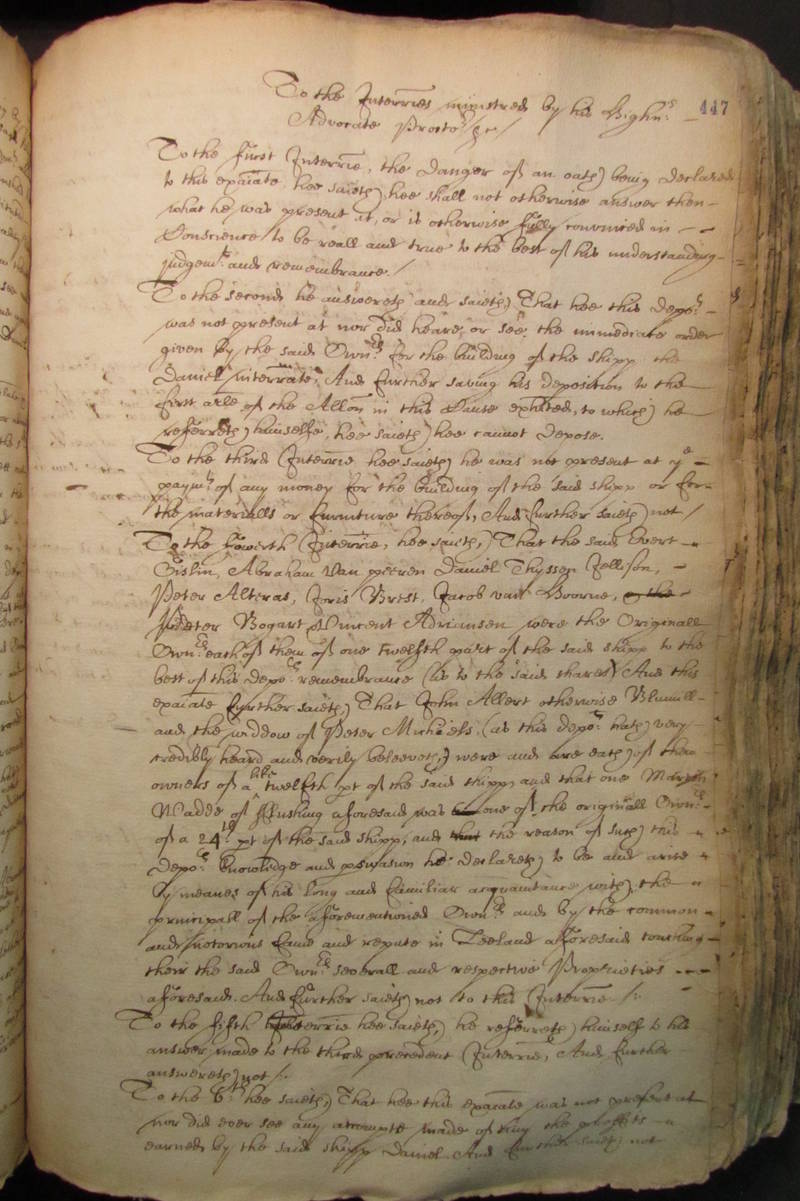 To the Interries ministred by his Highns 447
Advocate Proctor &c/
To the first Interrie, the danger of an oath being declared
to this exaiate hee saieth, hee shall not otherwise answer then
what he was present at, or is otherwise fully convinced in
Conscience to be reall and true to the best of his understanding
judgemt and remembrance./
To the second he answereth and saieth, That hee this depot
was not present at nor did heare, or see the immediate order
given by the said Ownrs for the building of the shipp the
Daniel interrate. And further saving his deposition to the
first arle of the Allon in this Cause exhited, to which he
referreth himselfe, hee saieth hee cannot depose.
To the third Interrie hee saieth he was not present at ye
paymt of any money for the building of the said shipp or for
the materialls or furniture thereof, And further saieth not/
To the fowrth Interrie, hee saieth, That the said Evert
Abraham Van peeren Daniel Thyssen Jellison,
Peter Alteras, Joris Brest, Jacob van Hoorne, or the
Peter Bogart Vincent Adriansen were the Originall
Ownrs each of them of one twelfth part of the said shipp to the
best of this depots remembrance (as to the said shares) And this
exaiate further saieth, That John Allert otherwise
and the widdow of Peter Michiels (as this depot hath very
credibly heard and verily beleeveth,) were and are each of them
owners of a like twelfth pt of the said shipp, and that one
Madde of fflushing aforesaid was one of the originall Ownrs
of a 24th pt of the said shipp, and that the reason of such this
depots knowledge and perswasion hee declareth to be and arise
by meanes of his long and familiar acquaintance with the
principall of the aforementioned Ownrs and by the common
and notorious fame and repute in Zeeland afforesaid touching
their the said Ownrs severall and respective Proprieties
aforesaid. And further saieth not to this Interrie /:
To the fifth Interrie hee saieth, he referreth himself to his
answer made to the third precedent Interrie, And further
answereth not /:
To the 6th hee saieth, That hee this exaiate was not present at
nor did ever see any accompte made of any the profitts
earned by the said shipp Daniel And further saieth not